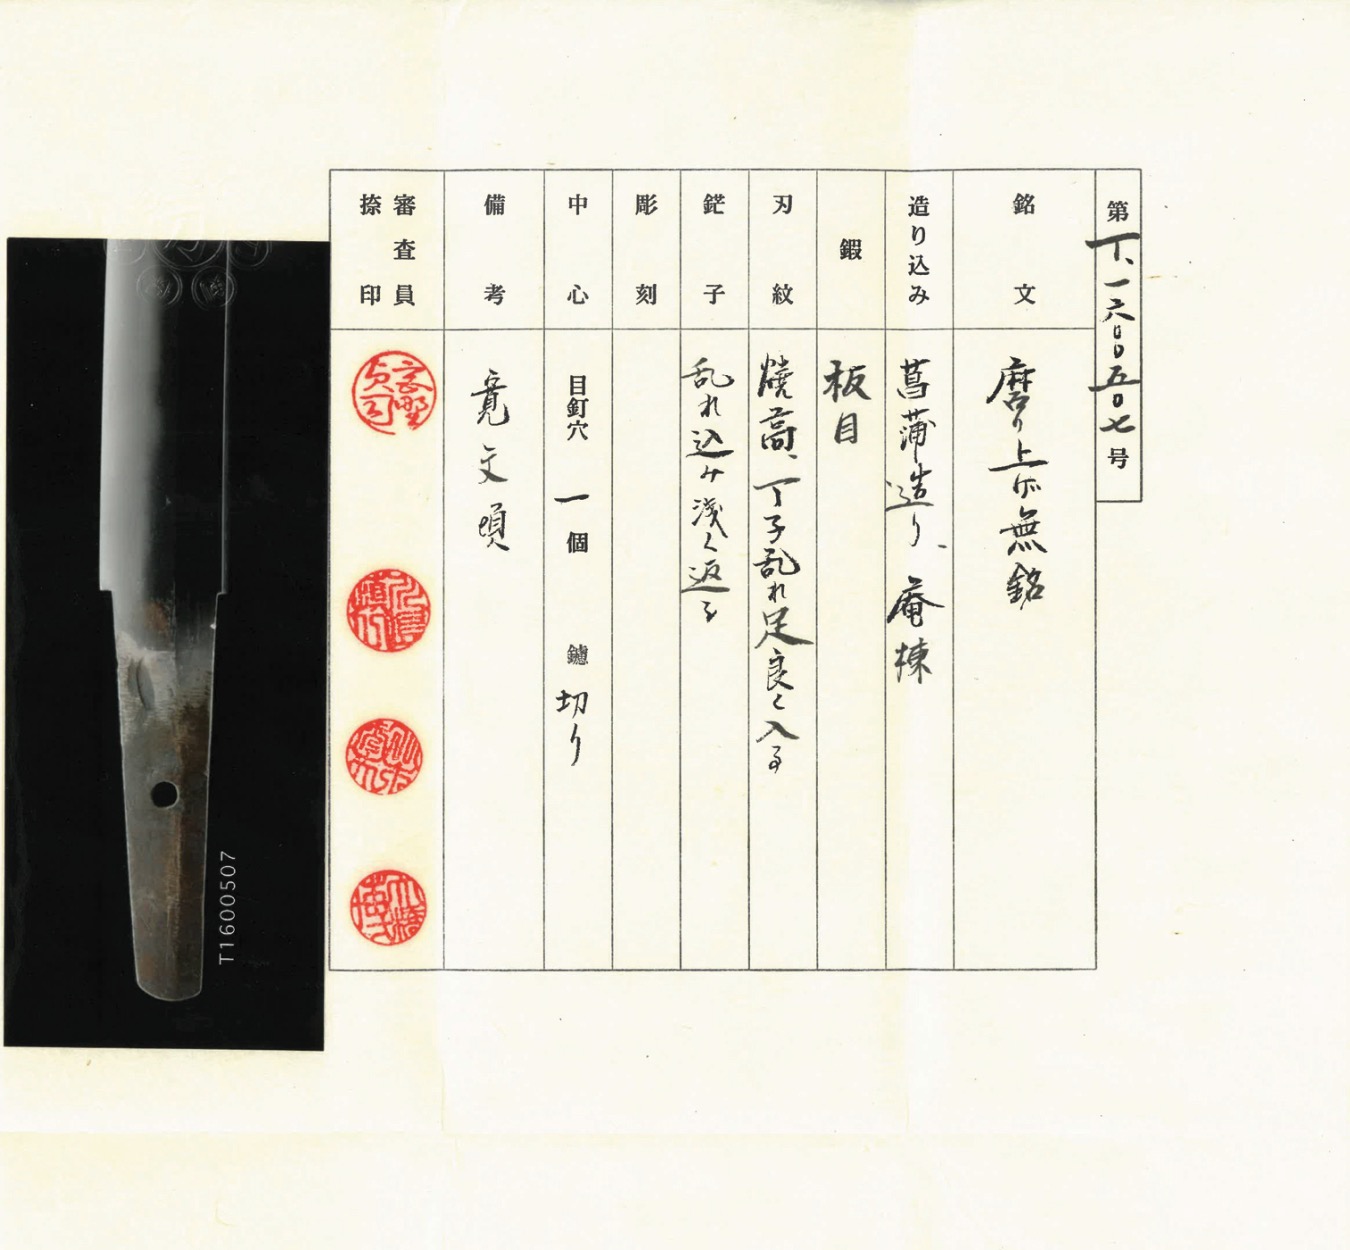 第丁、一六〇〇五〇七号
銘文
磨り上げ無銘
造り込み
菖蒲造り、庵棟
鍜
板目
刃紋
焼高、丁子乱れ足良く入る
鋩子
乱れ込み浅く返る
彫刻
中心
目釘穴 一個 鑢 切り
備考
寛文頃
審査員
捺印
T1600507